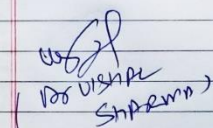 (Dr VISHAL
SHARMA)